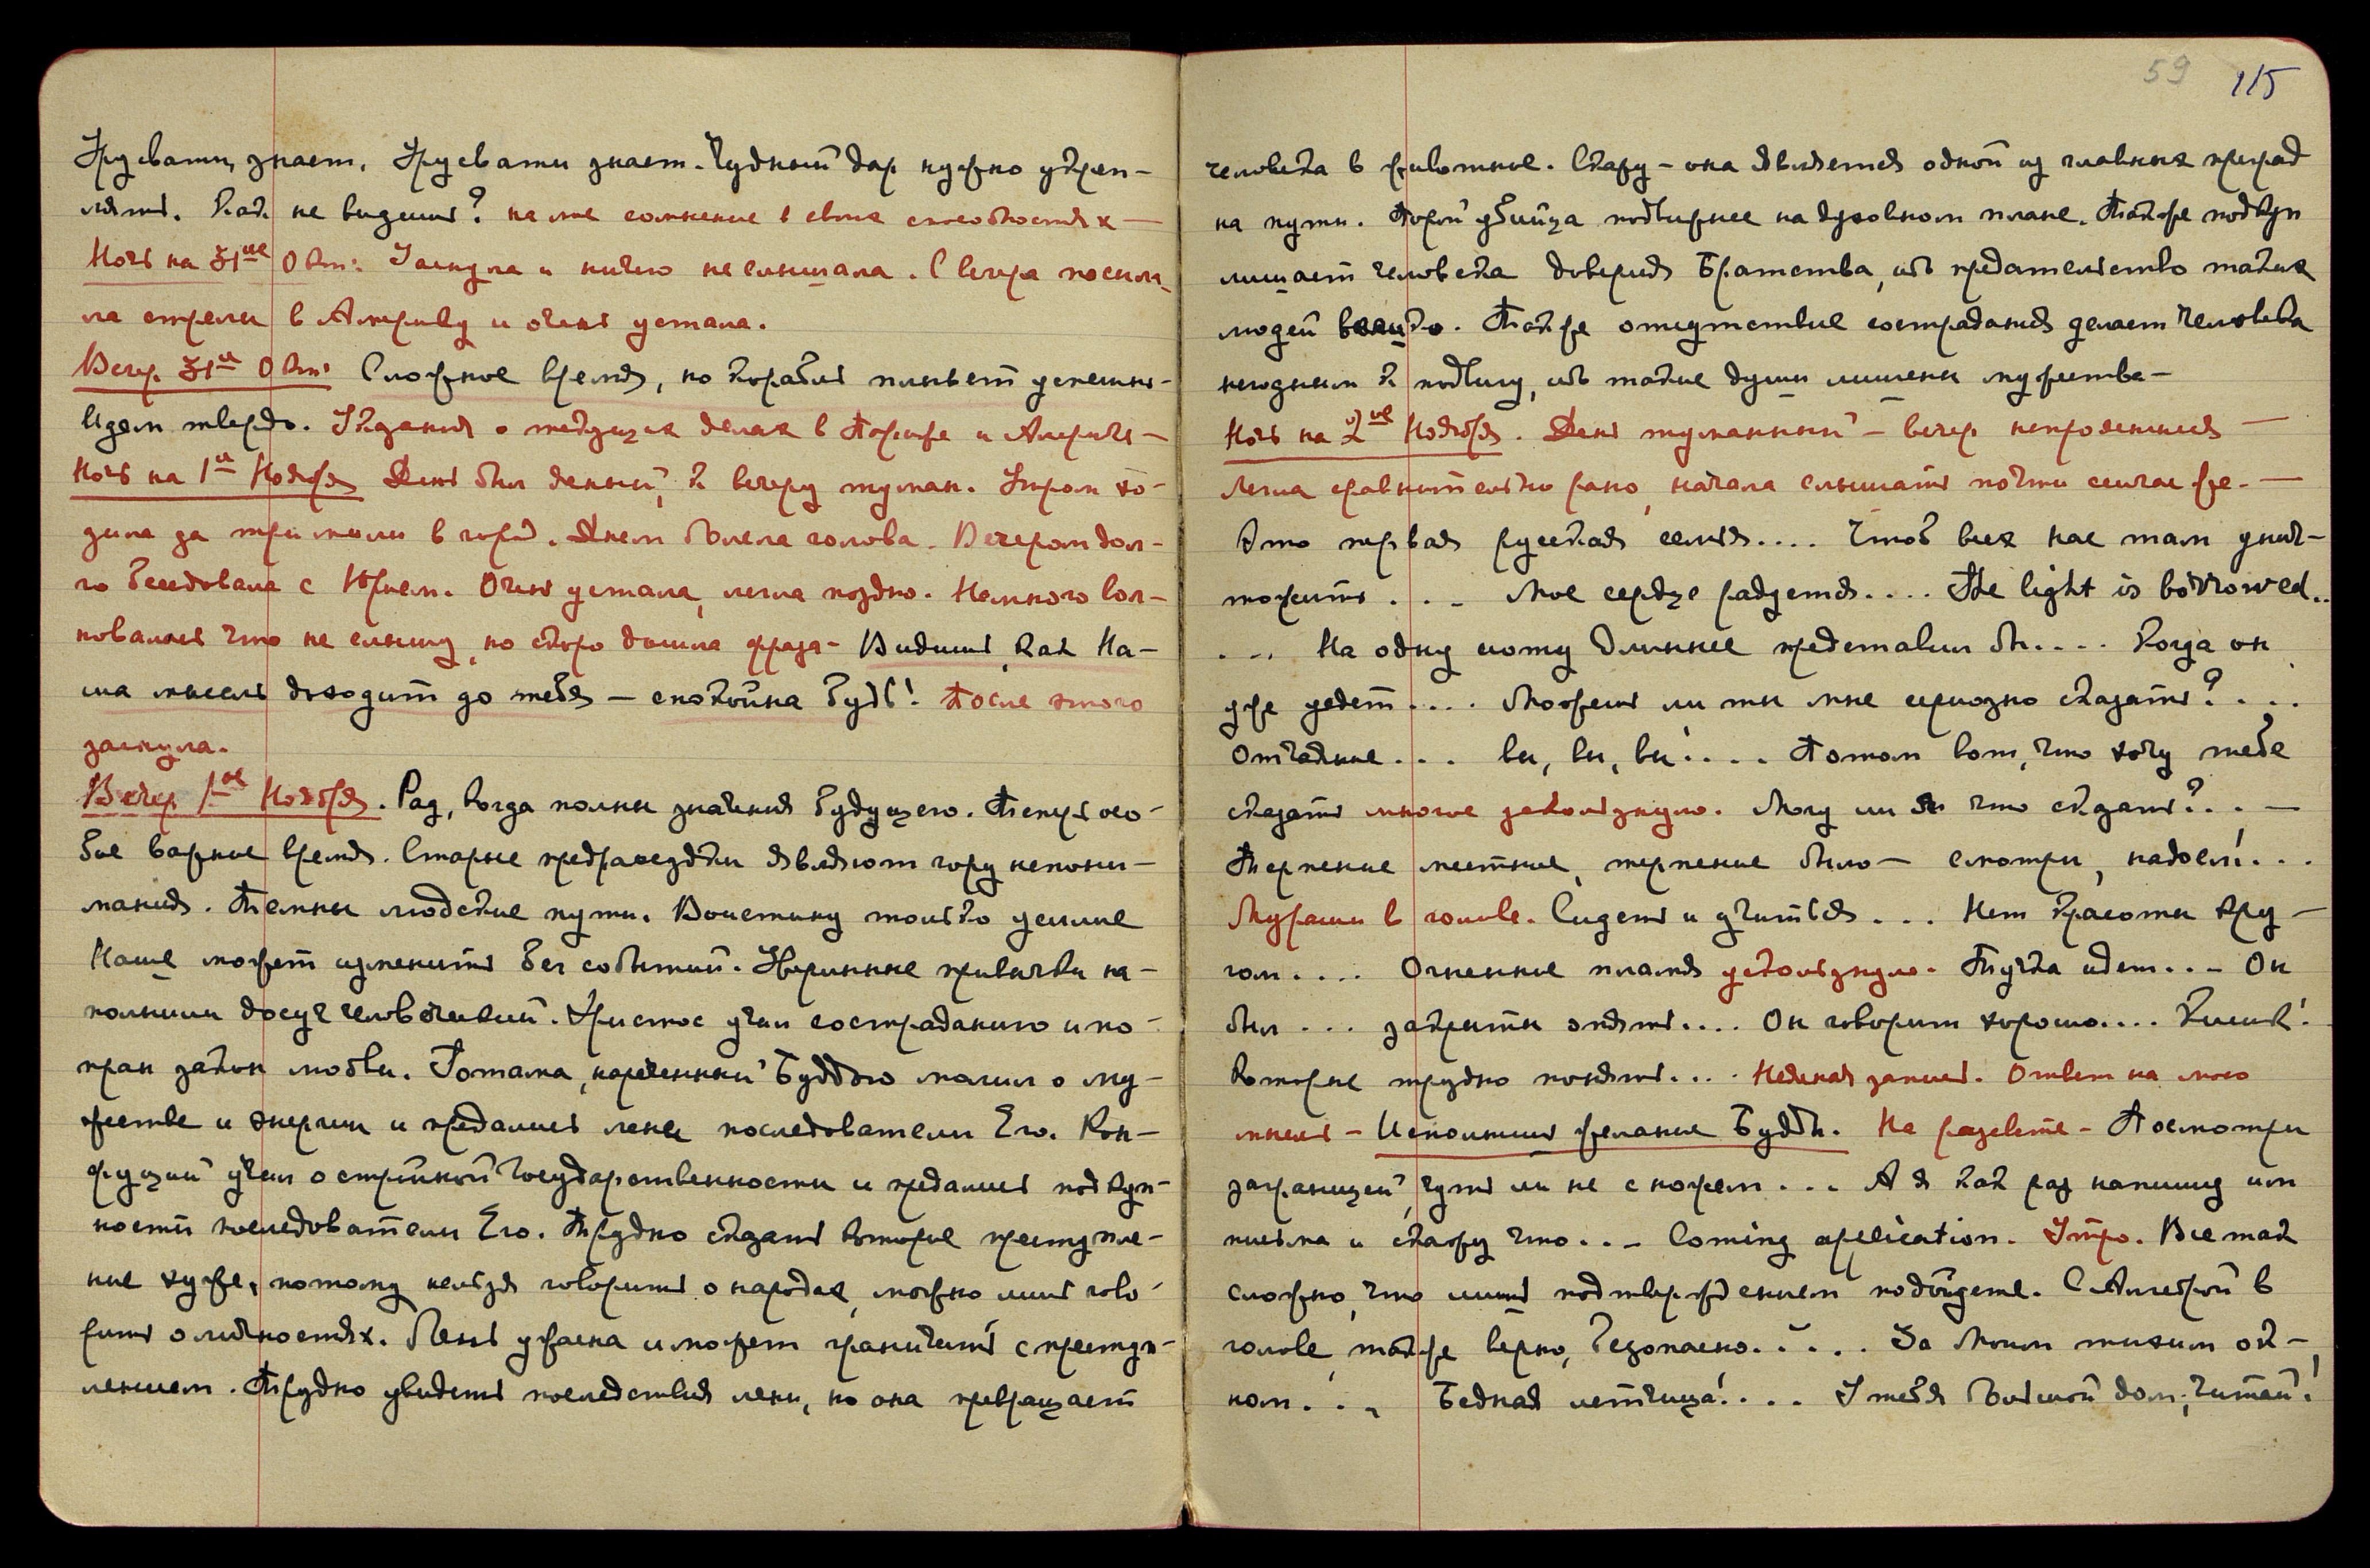 Урусвати знает, Урусвати знает. Чудный дар нужно укреп-
лять. Как не видишь? на мое сомнение в своих способностях —
Ночь на 31ое Окт: Заснула и ничего не слышала. С вечера посыла-
ла стрелы в Америку и очень устала.
Вечер 31го Окт: Сложное время, но корабль плывет успешно-
Идем твердо. Указания о текущих делах в Париже и Америке —
Ночь на 1ое Ноября День был ясный, к вечеру туман. Утром хо-
дила за три мили в город. Днем болела голова. Вечером дол-
го беседовала с Юрием. Очень устала, легла поздно. Немного вол-
новалась что не слышу, но скоро дошла фраза — Видишь, как На-
ша мысль доходит до тебя — спокойна будь! После этого
заснула.
Вечер 1ое Ноября. Рад, когда полны значения будущего. Теперь осо-
бое важное время. Старые предрассудки являют гору непони-
мания. Темны людские пути. Воистину только усилие
Наше может изменить бег событий. Никчемные привычки на-
полнили досуг человеческий. Христос учил состраданию и по-
пран закон любви. Готама, нареченный Буддою молил о му-
жестве и энергии и предались лени последователи Его. Кон-
фуций учил о стройной государственности и предались подкуп-
ности последователи Его. Трудно сказать которое преступле-
ние хуже, потому нельзя говорить о народах, можно лишь гово-
рить о личностях. Лень ужасна и может граничить с преступ-
лением. Трудно увидеть последствия лени, но она превращает
59 115
человека в животное. Скажу — она является одной из главных преград
на пути. Порой убийца подвижнее на духовном плане. Также подкуп
лишает человека доверия Братства, ибо предательство таких
людей велико. Также отсутствие сострадания делает человека
негодным к подвигу, ибо такие души лишены мужества —
Ночь на 2ое Ноября. День туманный — вечер непрояснился —
Легла сравнительно рано, начала слышать почти сейчас же. —
Это первая русская семья.... Чтоб всех нас там унич-
тожить ... Мое сердце радуется.... The light is borrowed..
... На одну ногу длиннее представил бы.... Когда он
уже уедет.... Можешь ли ты мне серьозно сказать?....
Отчаяние... вы, вы, вы!.... Потом вот, что хочу тебе
сказать многое ускользнуло. Могу ли я что сказать?.. —
Терпение местное, терпение было — смотри, надоел!...
Мурашки в голове. Сидеть и учиться... Нет красоты кру-
гом.... Огненные пламя ускользнуло. Тучка идет... Он
был... закрыты опять.... Он говорит хорошо.... Кишик!
Которые трудно понять.... Неясная запись. Ответ на мою
мысль — Исполнишь желание Будды. На рассвете — Посмотри
заграницей, чуть ли не с ножем... А я как раз напишу им
письма и скажу что... Coming application. Утро. Все так
сложно, что лишь подтверждением подойдете. С Амброй в
голове, также верно, безопасно..... За Моим тихим ок-
ном... Бедная летчица!.... У тебя большой дом, читай!